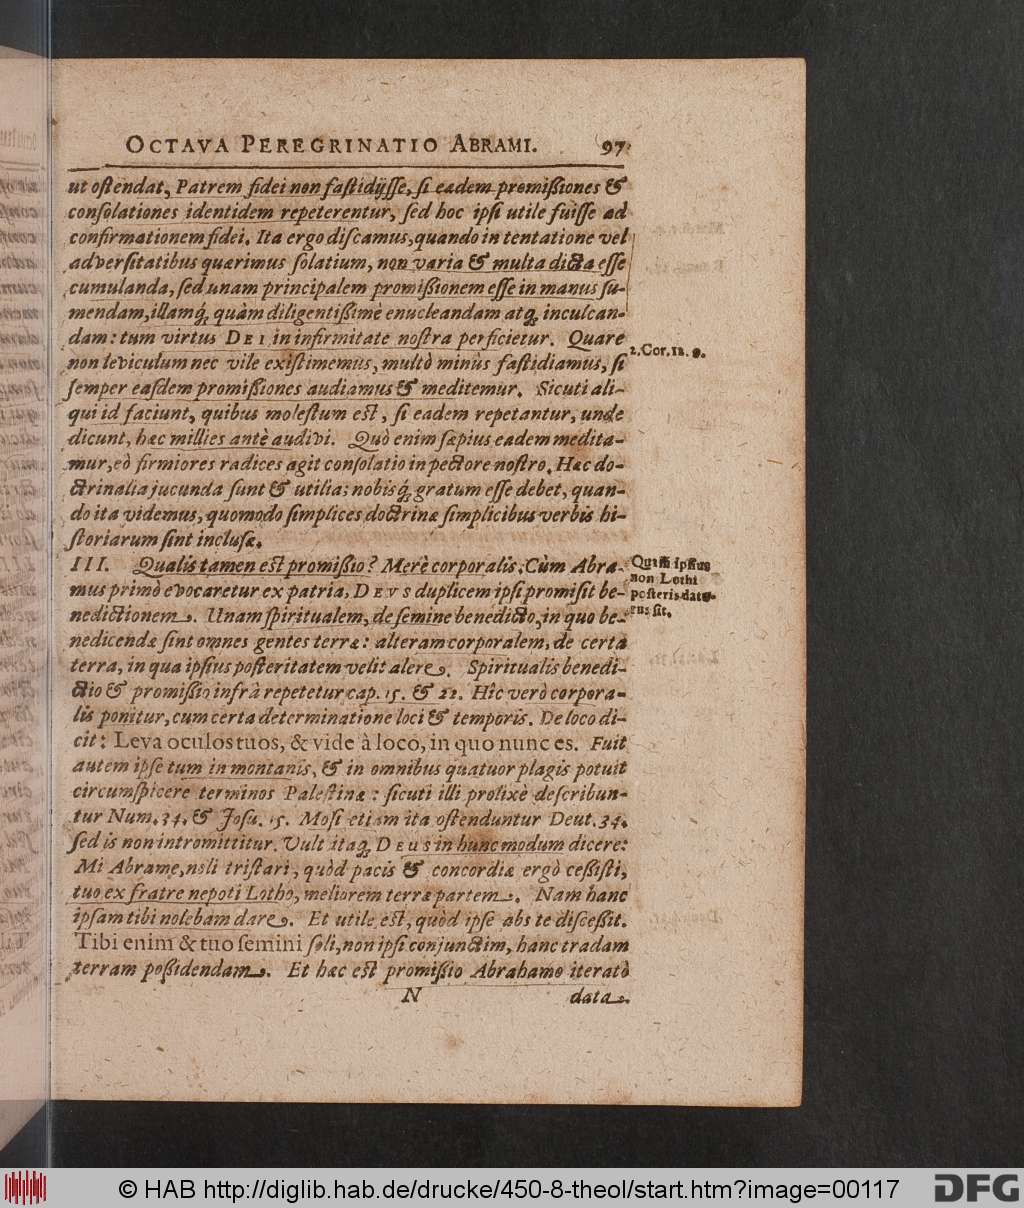 OCTAVA PEREGRINATIO ABRAMI. 97
ut oſtendat, Patrem fidei non faſtidijſſe, ſi eadem promißiones &
conſolationes identidem repeterentur, ſed hoc ipſi utile fuiſſe ad
confirmationem fidei. Ita ergo diſcamus, quando in tentatione vel
adverſitatibus quærimus ſolatium, non varia & multa dicta eſſe
cumulanda, ſed unam principalem promißionem eſſe in manus ſu-
mendam, illamq́; quàm diligentißimè enucleandam atq; inculcan-
dam: tum virtus DEI in infirmitate noſtra perficietur. Quare
non leviculum nec vile exiſtimemus, multò minùs faſtidiamus, ſi
2. Cor. 12. 9.
ſemper eaſdem promißiones audiamus & meditemur. Sicuti ali-
qui id faciunt, quibus moleſtum eſt, ſi eadem repetantur, unde
dicunt, hæc millies antè audivi. Quò enim ſæpius eadem medita-
mur, eò firmiores radices agit conſolatio in pectore noſtro. Hæc do-
ctrinalia jucunda ſunt & utilia; nobisq́; gratum eſſe debet, quan-
do ita videmus, quomodo ſimplices doctrinæ ſimplicibus verbis hi-
ſtoriarum ſint incluſæ.
III. Qualis tamen eſt promißio? Merè corporalis. Cùm Abra-
mus primò evocaretur ex patria, DEVS duplicem ipſi promiſit be-
nedictionem. Unam ſpiritualem, de ſemine benedicto, in quo be-
non Lothi
nedicendæ ſint omnes gentes terræ: alteram corporalem, de certa
terra, in qua ipſius poſteritatem velit alere. Spiritualis benedi-
ctio & promißio infrà repetetur cap. 15. & 22. Hîc verò corpora-
lis ponitur, cum certa determinatione loci & temporis. De loco di-
cit: Leva oculos tuos, & vide à loco, in quo nunc es. Fuit
autem ipſe tum in montanis, & in omnibus quatuor plagis potuit
circumſpicere terminos Palæſtinæ: ſicuti illi prolixè deſcribun-
tur Num. 34. & Joſu. 15. Moſi etiam ita oſtenduntur Deut. 34.
ſed is non intromittitur. Vult itaq; DEUS in hunc modum dicere:
Mi Abrame, noli triſtari, quòd pacis & concordiæ ergò ceßiſti,
tuo ex fratre nepoti Lotho, meliorem terræ partem. Nam hanc
ipſam tibi nolebam dare. Et utile eſt, quòd ipſe abs te diſceßit.
Tibi enim & tuo ſemini ſoli, non ipſi conjunctim, hanc tradam
terram poßidendam. Et hæc eſt promißio Abrahamo iteratò
N data.
© HAB http://diglib.hab.de/drucke/450-8-theol/start.htm?image=00117 DFG